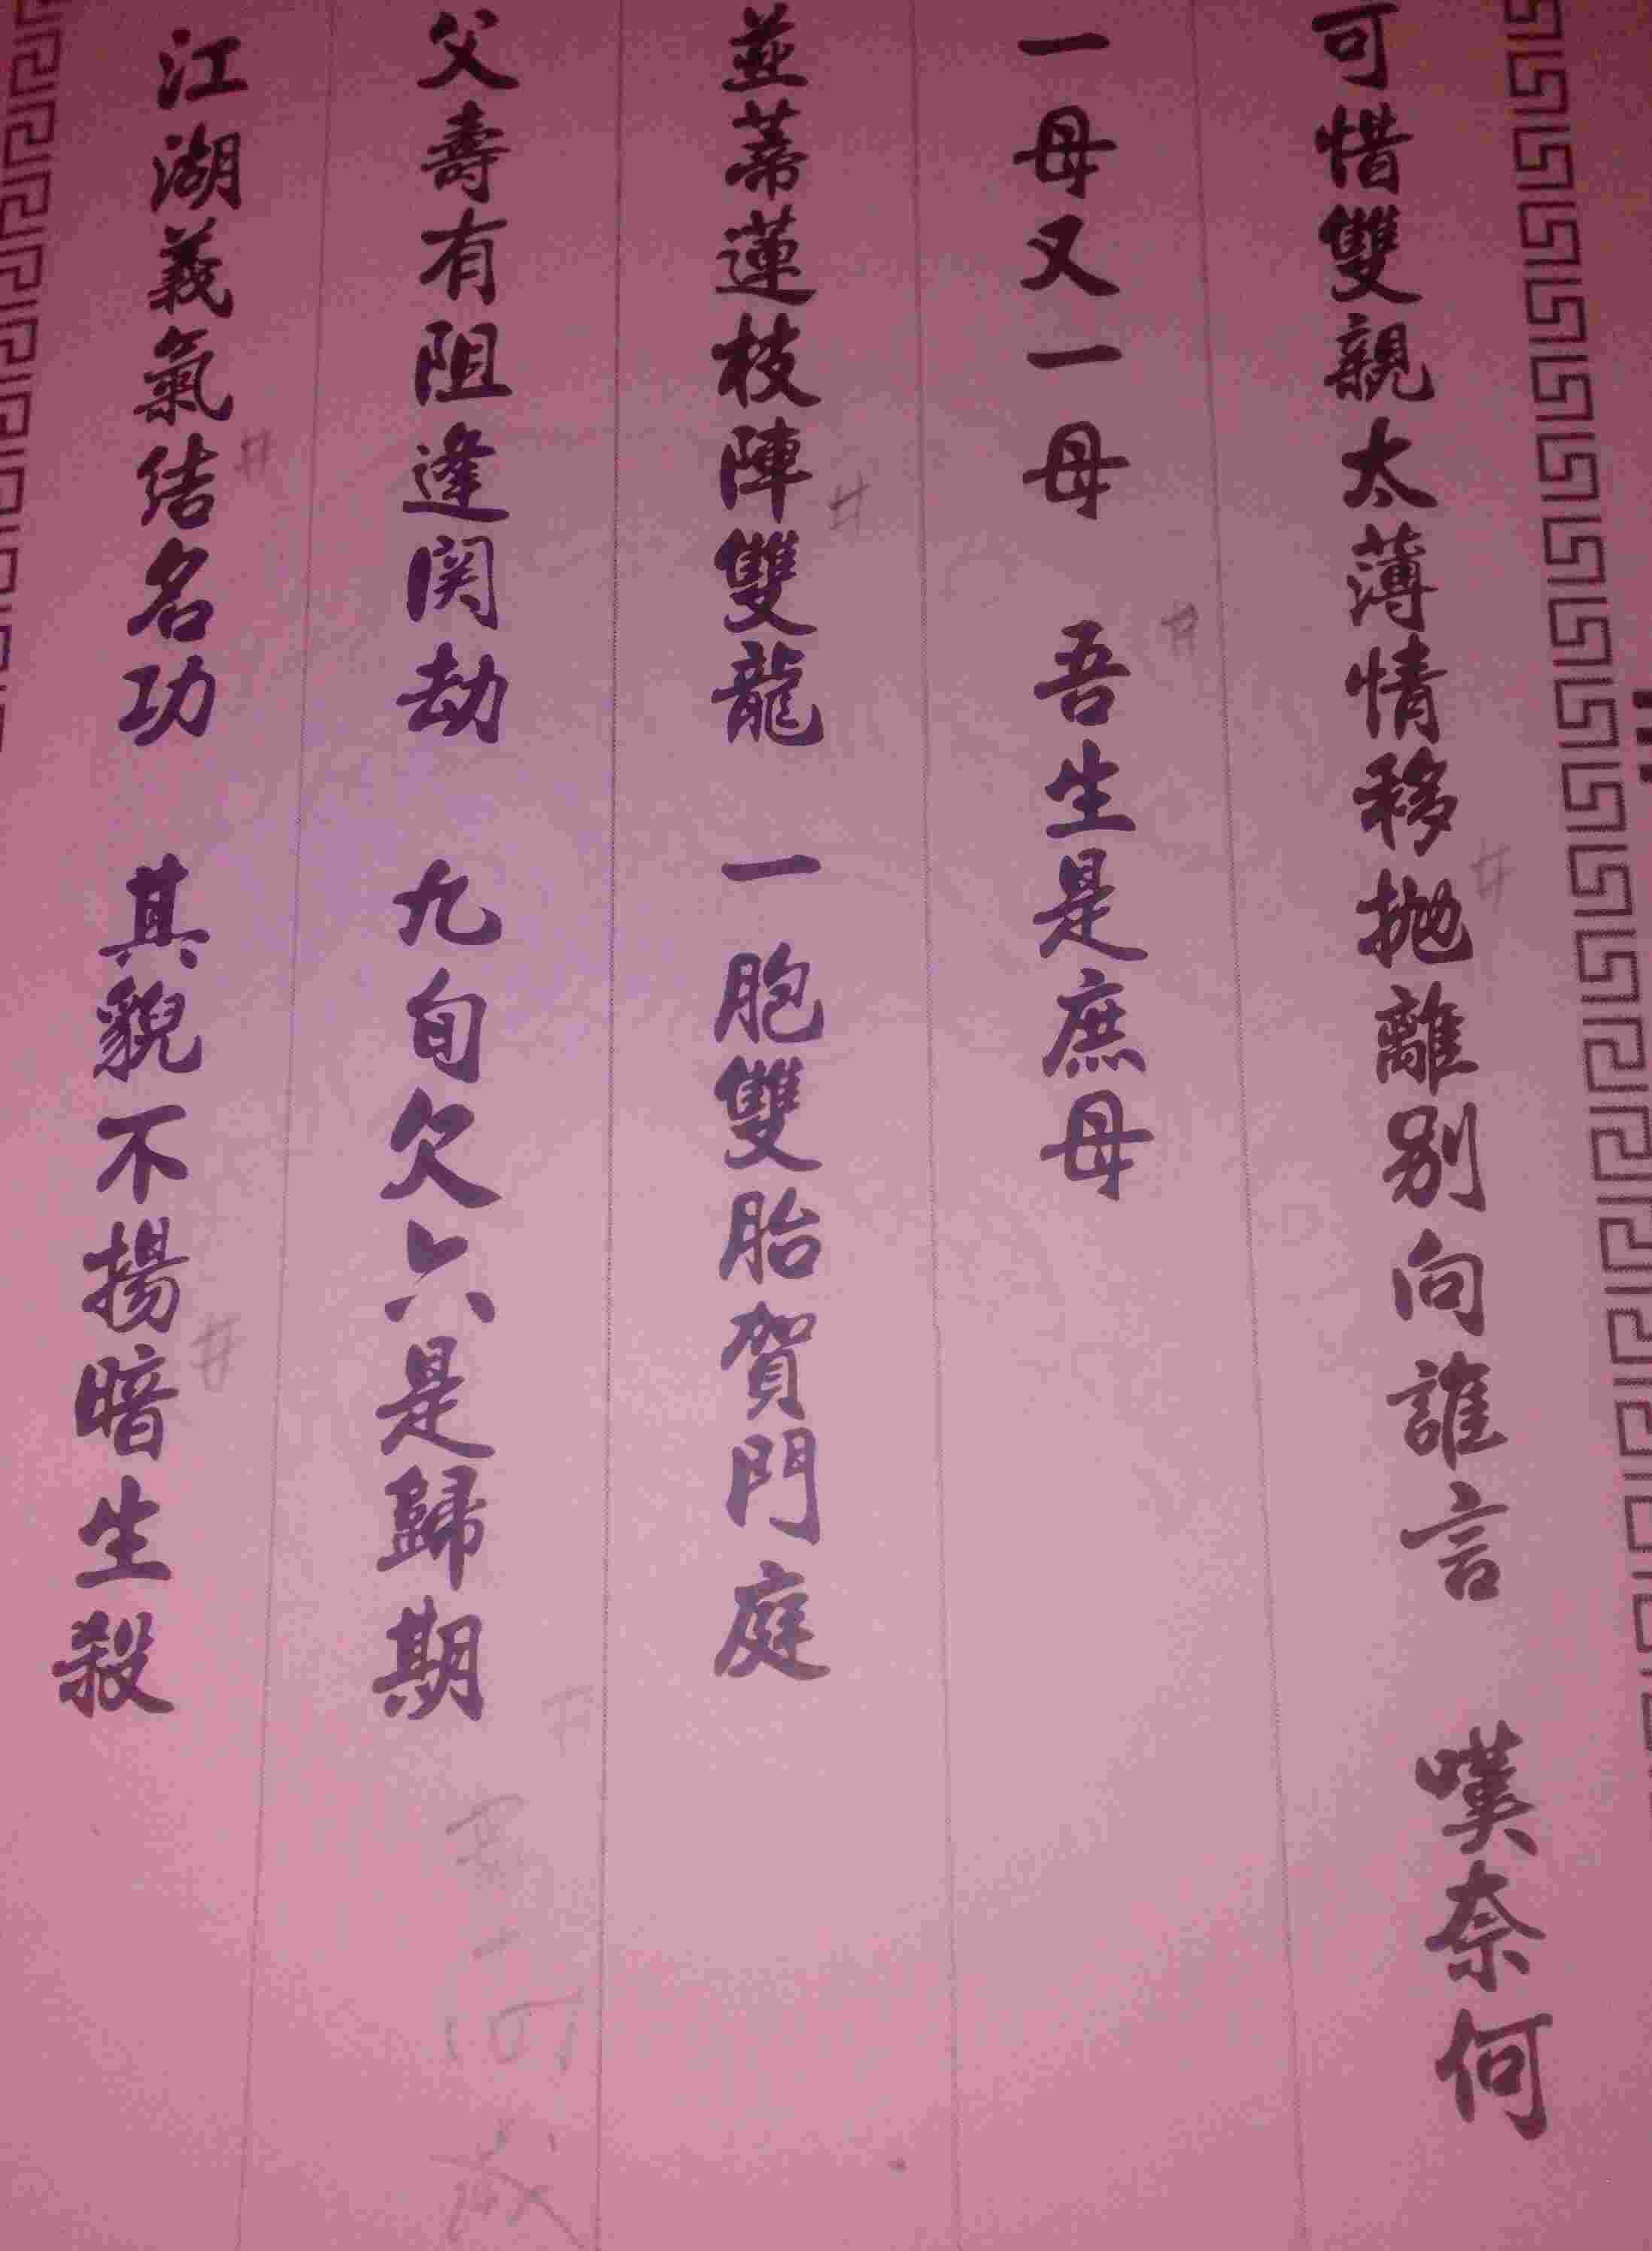 可惜雙親太薄情移拋離别向誰言　嘆奈何
一母又一母　吾生是庶母
並蒂蓮枝陣雙龍　一胞雙胎賀門庭
父壽有阻逢関劫　九旬欠六是歸期
江湖義氣结名功　其貌不揚暗生殺